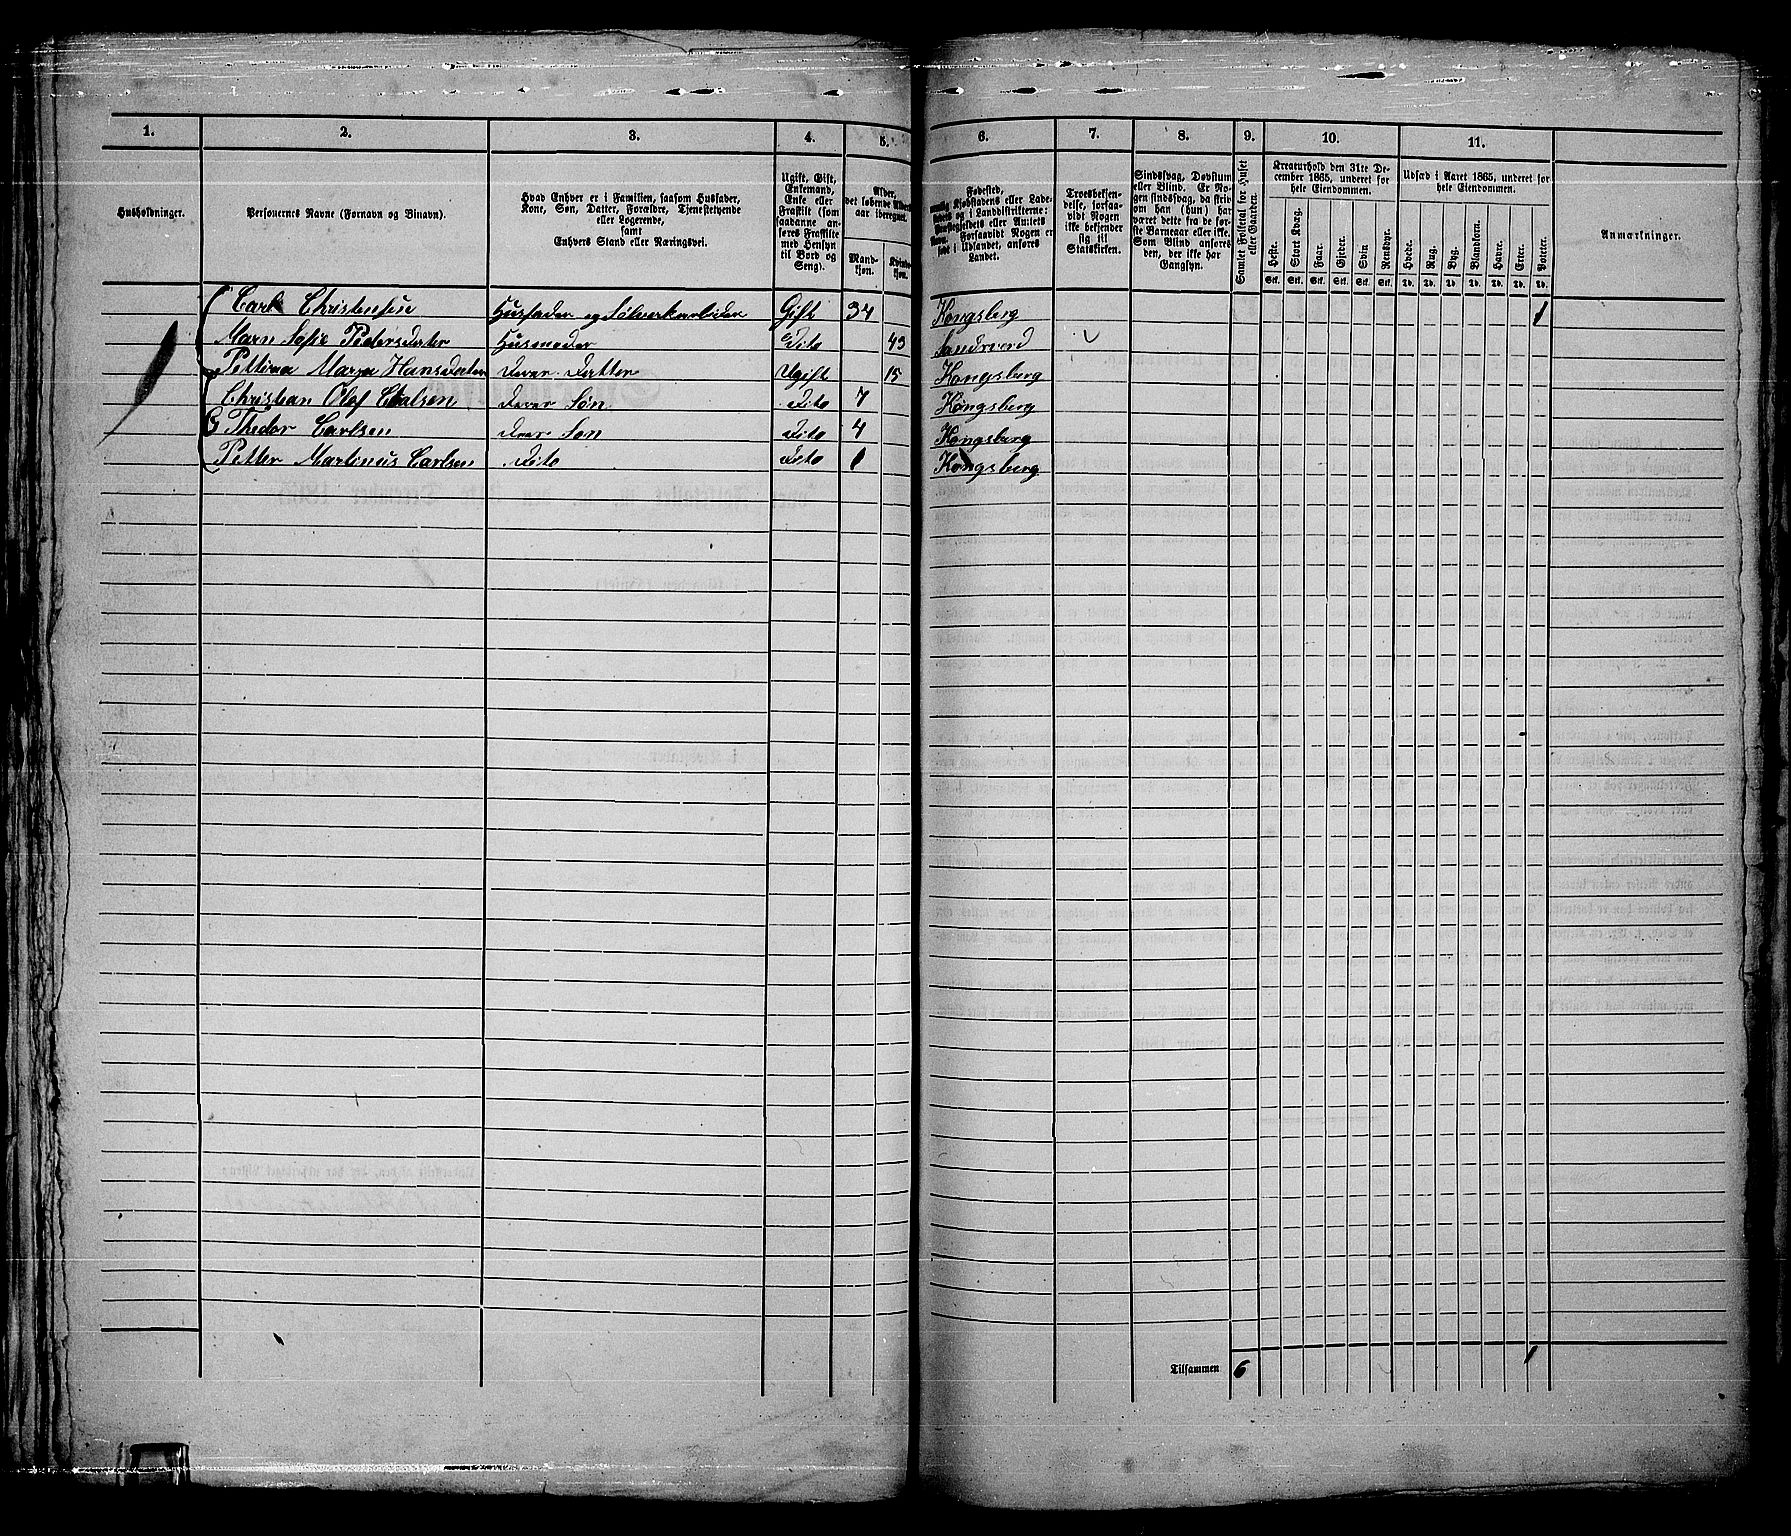 1. 2. 3. 4. 5. 6. 7. 8. 9. 10. 11.
Husholdninger.
Personernes Navne (Fornavn og Binavn).
Hvad Enhver er i Familien, saasom Husfader,
Kone, Søn, Datter, Forældre, Tjenestetyende
eller Logerende,
samt
Enhvers Stand eller Næringsvei.
Ugift, Gift,
Enkemand,
Enke eller
Fraskilt (som
saadanne an-
føres Fraskilte
med Hensyn
til Bord og
Seng).
Alder,
det løbende Alders-
aar iberegnet.
Mand-
kjøn.
Kvinde-
kjøn.
Fødested,
Kjøbstadens eller Lade-
og i Landdistrikterne:
Præstegjeldets eller Amtets
Navn. Forsaavidt Nogen er
født i Udlandet, anføres
Landet.
Troesbekjen-
delse, forsaa-
vidt Nogen
ikke bekjender
sig til
Statskirken.
Sindssvag, Døvstum
eller Blind. Er No-
gen sindssvag, da skriv
om han (hun) har
været dette fra de før-
ste Barneaar eller ikke.
Som Blind anføres
den, der ikke har
Gangsyn.
Samlet Folketal for Huset
eller Gaarden.
Kreaturhold den 31te De-
cember 1865, underet for
hele Eiendommen.
Heste. Stort Kvæg. Faar. Gjeder. Svin Rensdyr.
Stk. Stk. Stk. Stk. Stk. Stk.
Udsæd i Aaret 1865, underet for
hele Eiendommen.
Hvede. Rug. Byg. Blandkorn. Havre. Erter. Poteter.
Td. Td. Td. Td. Td. Td. Td.
Anmærkninger.
1 Carl Christensen Husfader og Sølverkarbider Gift 34 Kongsberg 1
Marn Sofie Pedersdater Husmoder Dito 43 Sandsverd
Pettina Marya Hansdater deres Datter Ugift 15 Kongsberg
Christian Olaf Carlsen deres Søn Dito 7 Kongsberg
G Thedor Carlsen deres Søn Dito 4 Kongsberg
Petter Martinus Carlsen Dito Dito 1 Kongsberg
Tilsammen 6 1